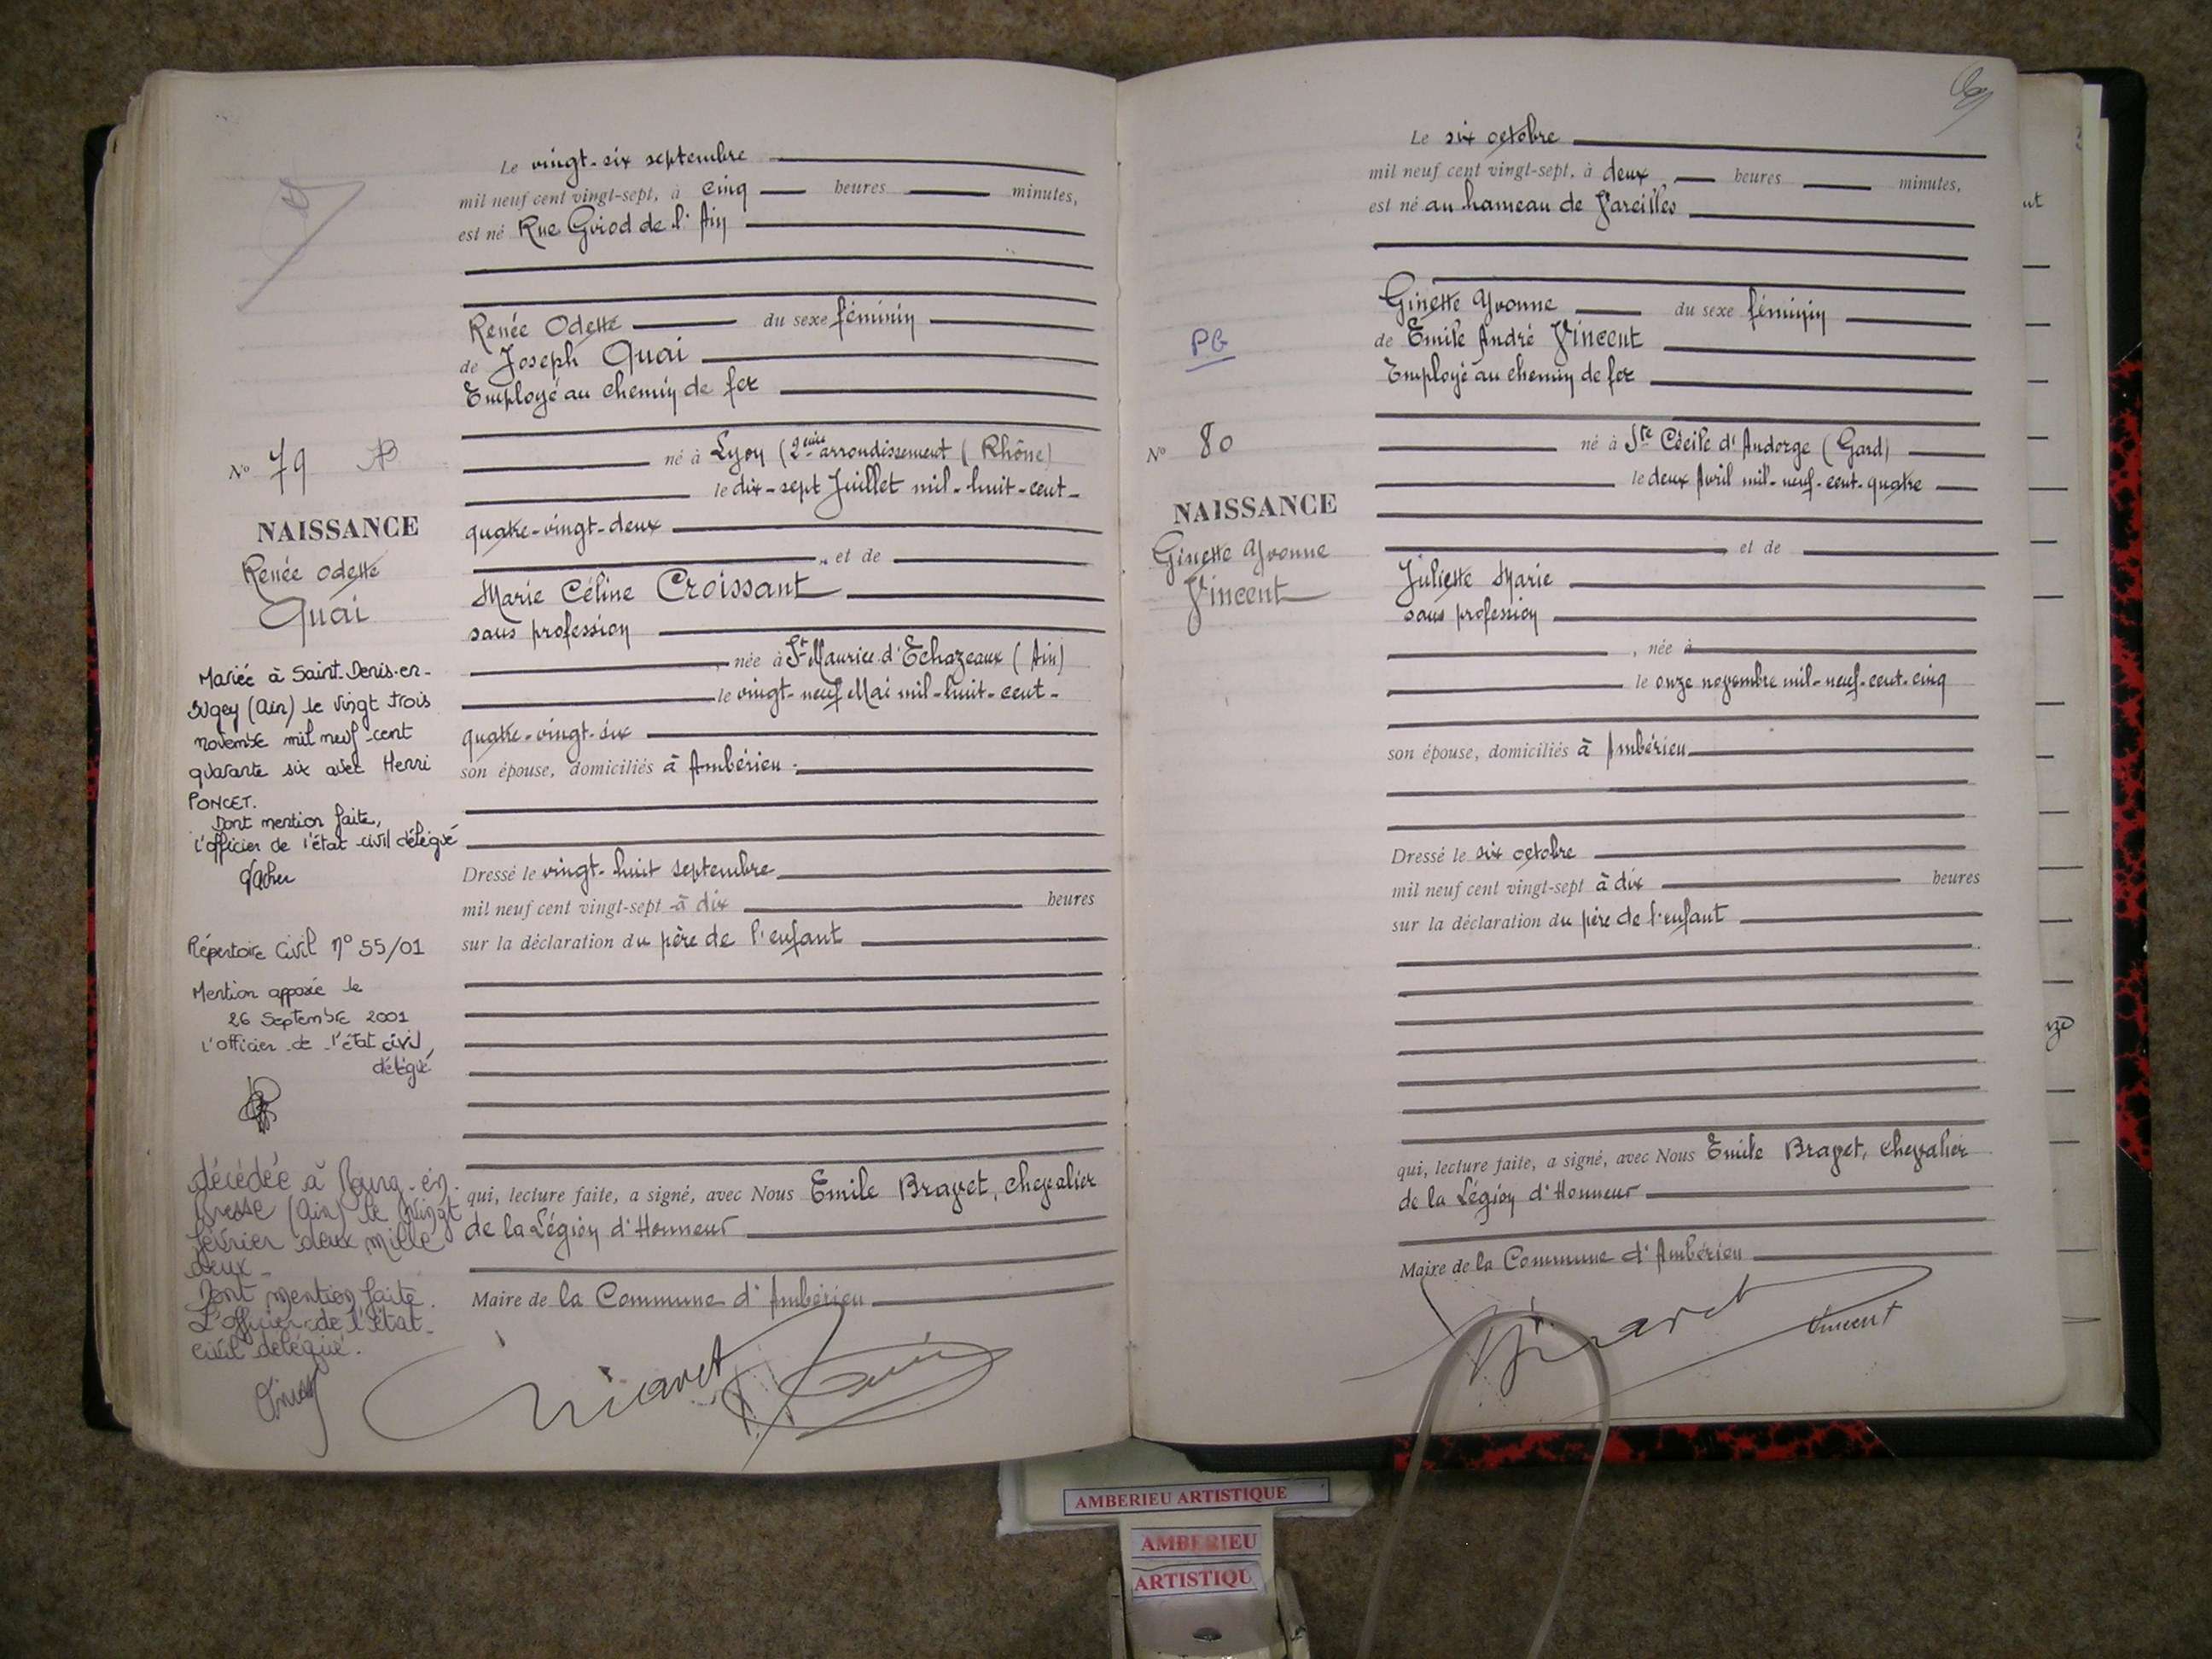 Le vingt-six septembre
mil neuf cent vingt-sept, à cinq heures minutes,
est né Rue Girod de l'Ain
Renée Odette du sexe féminin
de Joseph Quai
Employé au chemin de fer
né à Lyon (2eme arrondissement ( Rhône)
le dix-sept Juillet mil-huit-cent-
quatre-vingt-deux
, et de
Marie Céline Croissant
sans profession
, née à St Maurice d'Echazeaux (Ain)
le vingt-neuf Mai mil-huit-cent-
quatre-vingt-six
son épouse, domiciliés à Ambérieu.
Dressé le vingt-huit septembre
mil neuf cent vingt-sept à dix heures
sur la déclaration du père de l'enfant
qui, lecture faite, a signé, avec Nous Emile Bravet, chevalier
de la Légion d'Honneur
Maire de la Commune d'Ambérieu
No 79
NAISSANCE
Renée Odette
Quai
Mariée à Saint-Denis-en-
Bugey (Ain) le vingt trois
novembre mil neuf cent
quarante six avec Henri
PONCET.
Dont mention faite,
L'officier de l'état civil délégué
Répertoire Civil N° 55/01
Mention apposée le
26 Septembre 2001
L'officier de l'état civil,
délégué
décédée à Bourg-en-
Bresse (Ain) le vingt
février deux mille
deux-
Dont mention faite.
L'officier de l'état-
civil délégué.
Le six octobre
mil neuf cent vingt-sept, à deux heures minutes,
est né au hameau de Vareilles
Ginette Yvonne du sexe féminin
de Emile André Vincent
Employé au chemin de fer
né à Ste Cécile d'Andorge (Gard)
le deux Avril mil-neuf-cent-quatre
, et de
Juliette Marie
sans profession
, née à
le onze novembre mil-neuf-cent-cinq
son épouse, domiciliés à Ambérieu
Dressé le six octobre
mil neuf cent vingt-sept à dix heures
sur la déclaration du père de l'enfant
qui, lecture faite, a signé, avec Nous Emile Bravet, chevalier
de la Légion d'Honneur
Maire de la Commune d'Ambérieu
Vincent
PB
No 80
NAISSANCE
Ginette Yvonne
Vincent
AMBERIEU ARTISTIQUE
AMBERIEU
ARTISTIQU